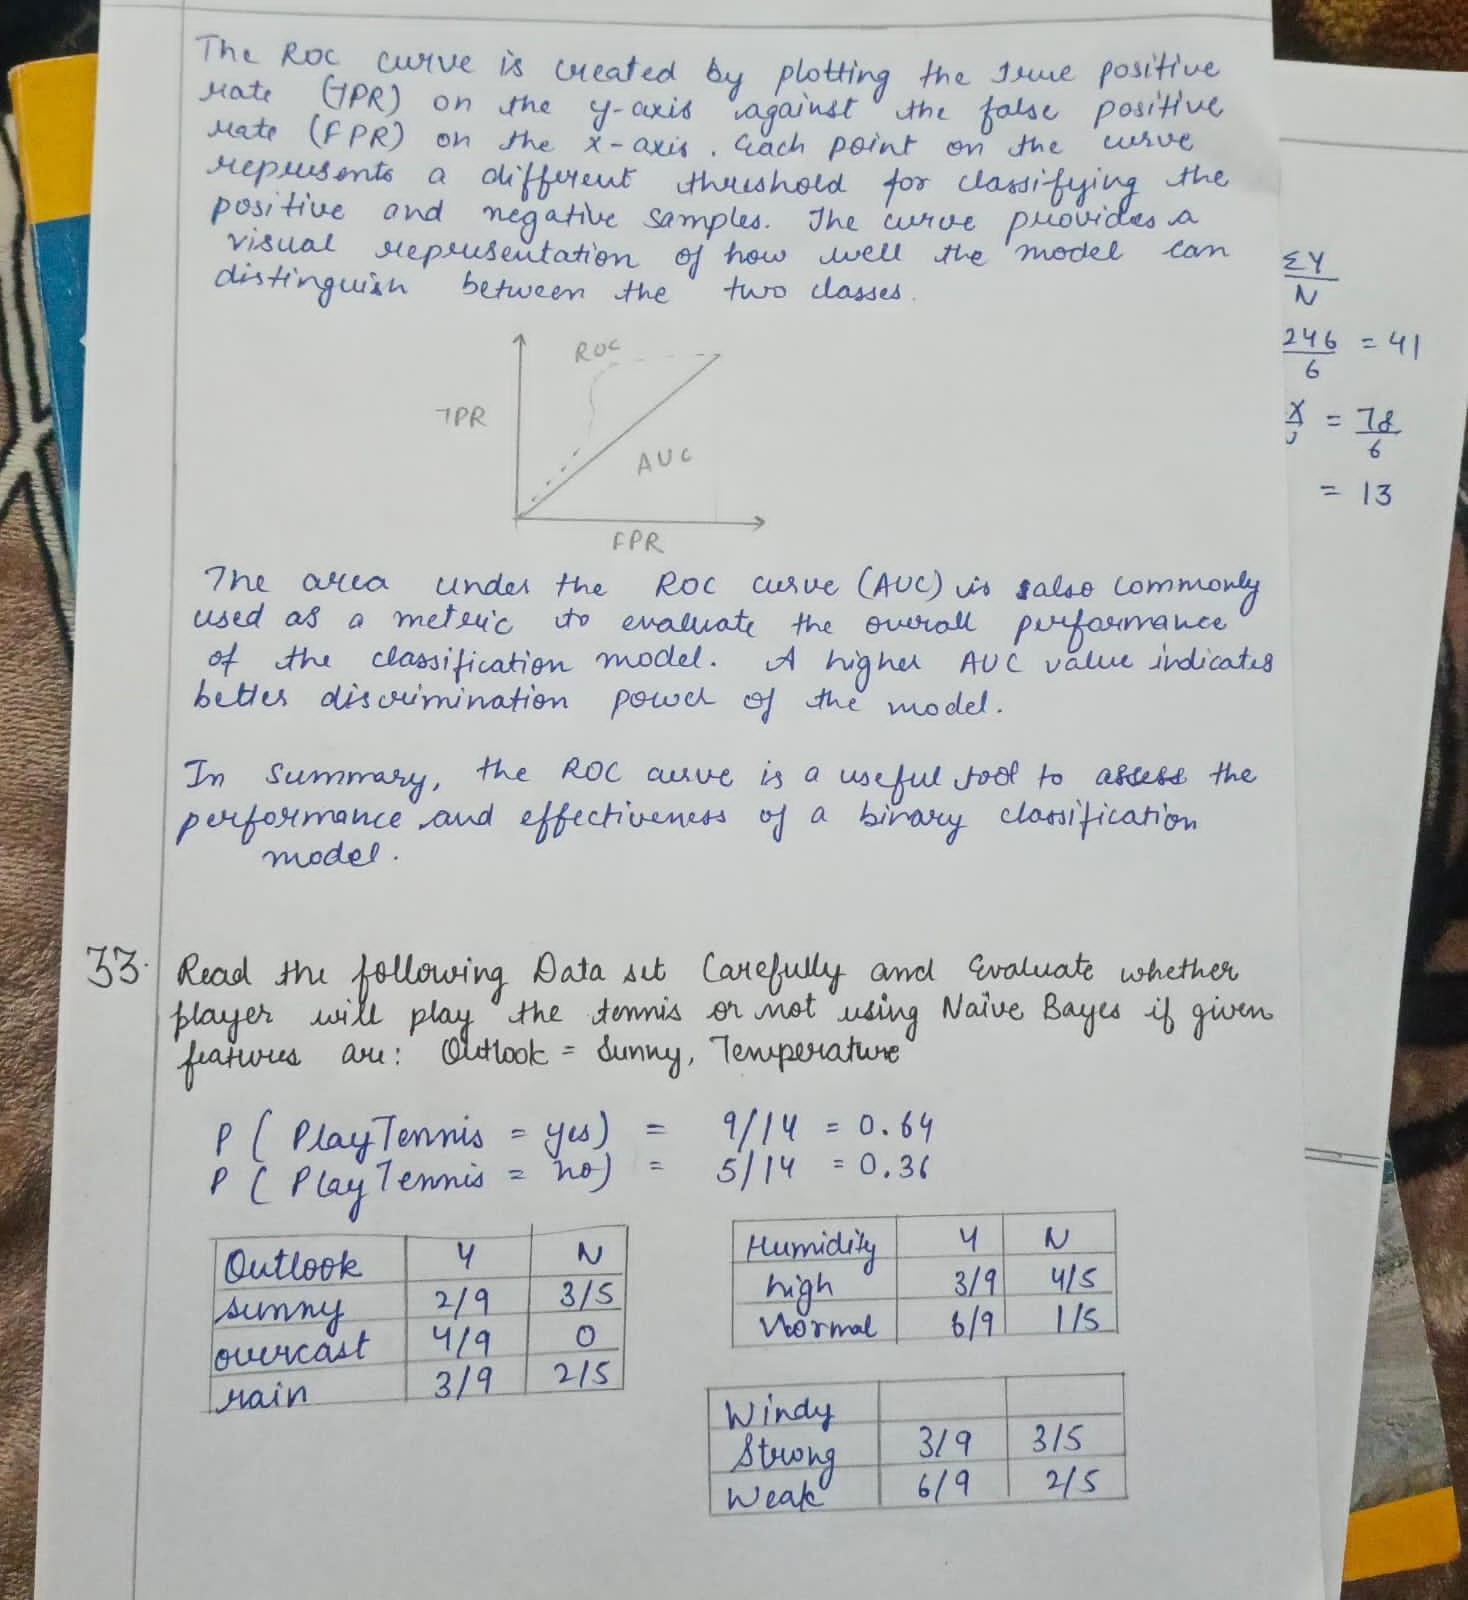 The ROC curve is created by plotting the true positive
rate (TPR) on the y-axis against the false positive
rate (FPR) on the x-axis. Each point on the curve
represents a different threshold for classifying the
positive and negative samples. The curve provides a
visual representation of how well the model can
distinguish between the two classes.
ROC
TPR
AUC
FPR
The area under the ROC curve (AUC) is also commonly
used as a metric to evaluate the overall performance
of the classification model. A higher AUC value indicates
better discrimination power of the model.
In summary, the ROC curve is a useful tool to assess the
performance and effectiveness of a binary classification
model.
33. Read the following Data set Carefully and Evaluate whether
player will play the tennis or not using Naïve Bayes if given
features are: Outlook = Sunny, Temperature
P ( PlayTennis = yes) = 9/14 = 0.64
P ( PlayTennis = no) = 5/14 = 0.36
Outlook Y N
sunny 2/9 3/5
overcast 4/9 0
rain 3/9 2/5
Humidity Y N
high 3/9 4/5
Normal 6/9 1/5
Windy
Strong 3/9 3/5
Weak 6/9 2/5
ΣY
N
246 = 41
6
= 78
6
= 13